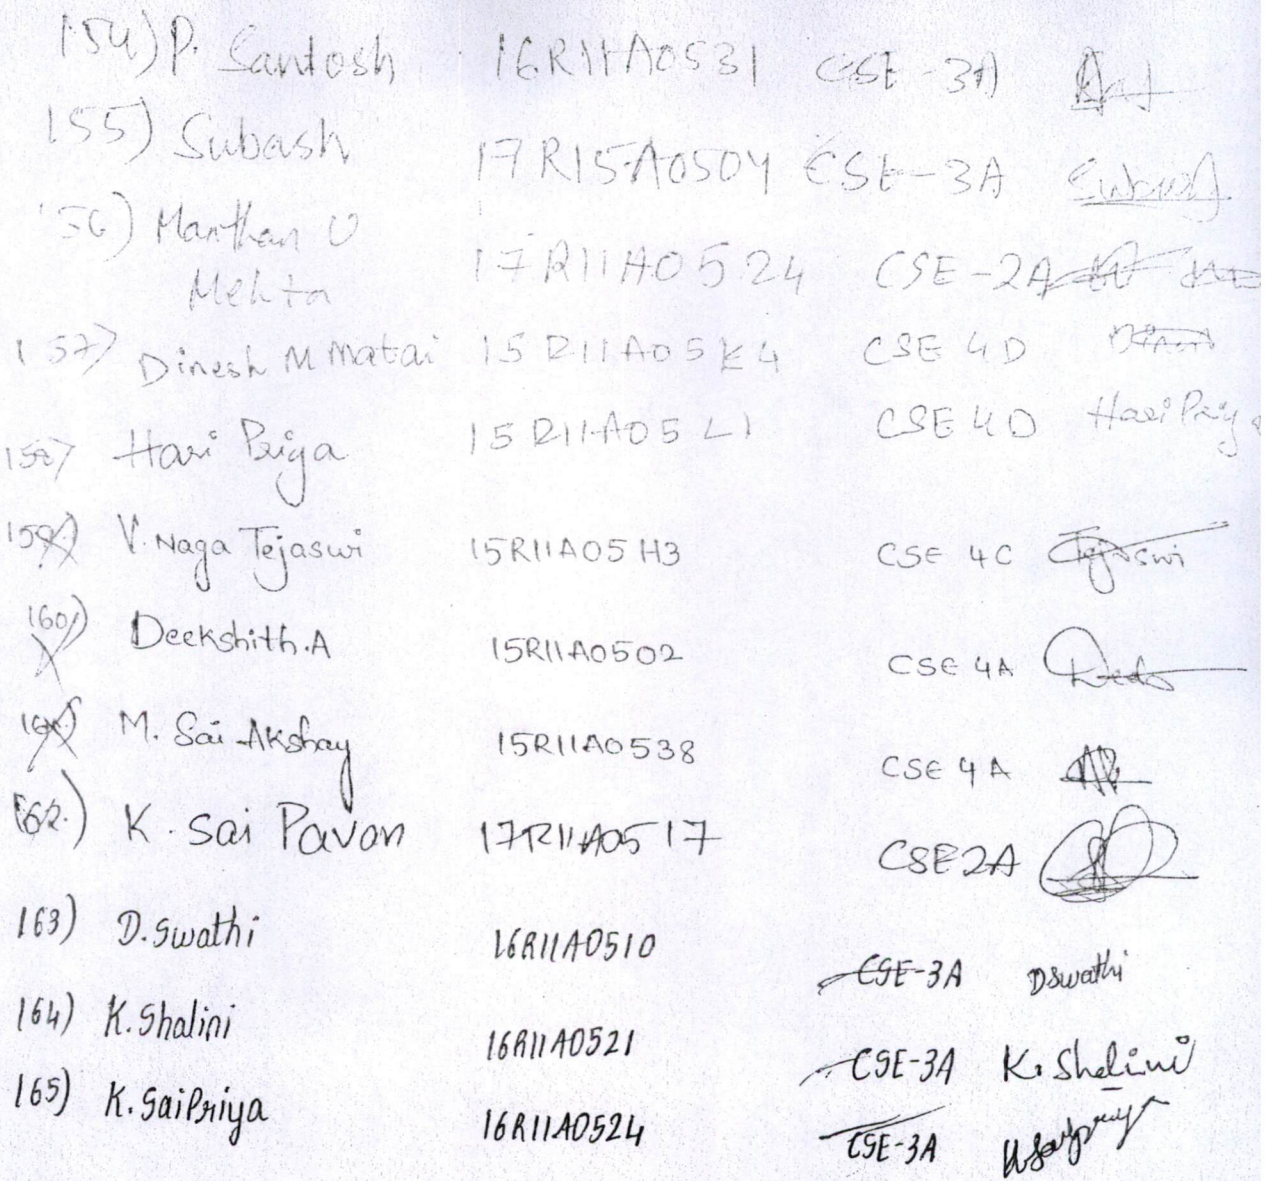 154) P. Santosh 16R11A0531 CSE-3A
155) Subash 17R15A0504 CSE-3A Subash
156) Manthan U 17R11A0524 CSE-2A
Mehta
157) Dinesh M Matai 15R11A05K4 CSE 4D
158) Hari Priya 15R11A05L1 CSE 4D Hari Priya
159) V. Naga Tejaswi 15R11A05H3 CSE 4C Tejaswi
160) Deekshith.A 15R11A0502 CSE 4A
161) M. Sai Akshay 15R11A0538 CSE 4A
162.) K. Sai Pavan 17R11A0517 CSE 2A
163) D. Swathi 16R11A0510 CSE-3A D Swathi
164) K. Shalini 16R11A0521 CSE-3A K. Shalini
165) K. SaiPriya 16R11A0524 CSE-3A K Saipriya